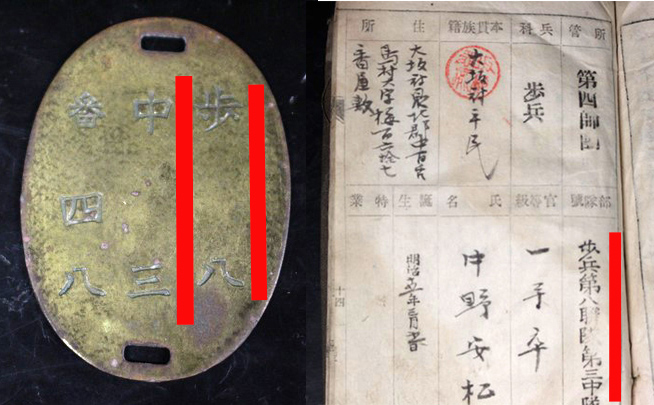 歩 八
中 三
番 四八
所管
第四師團
兵科
歩兵
本貫族籍
大坂府平民
住所
大坂府泉北郡中百舌
鳥村大字梅百六拾七
番屋敷
部隊號
歩兵第八聯隊第三中隊
官等級
一等卒
氏名
中野安松
誕生
明治
特業
十四